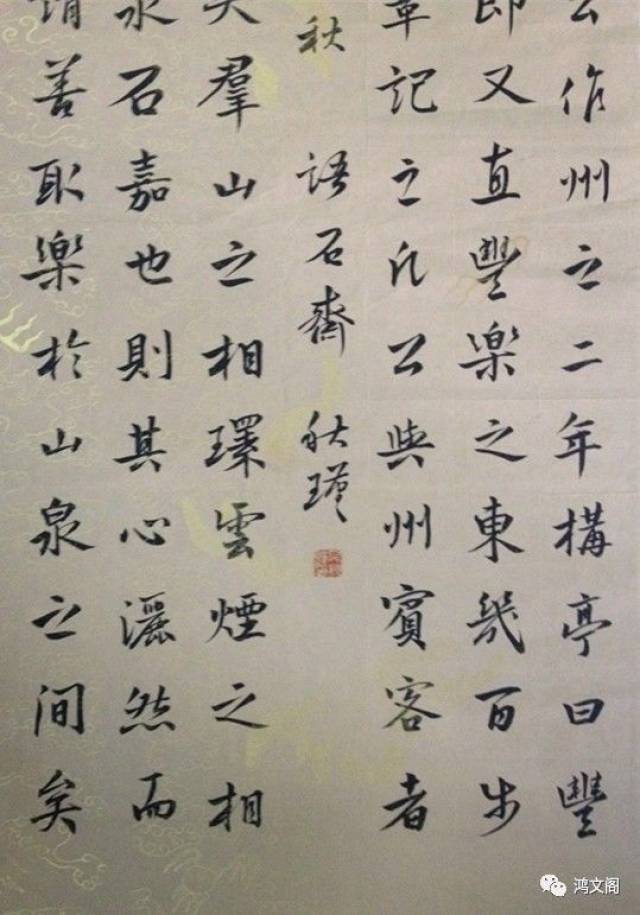 公作州之二年構亭曰豐
即又直豐樂之東幾百步
章記之凡公與州賓客者
秋 語石齋 秋瑾
夫羣山之相環雲煙之相
泉石嘉也則其心灑然而
謂善取樂於山泉之間矣
鸿文阁